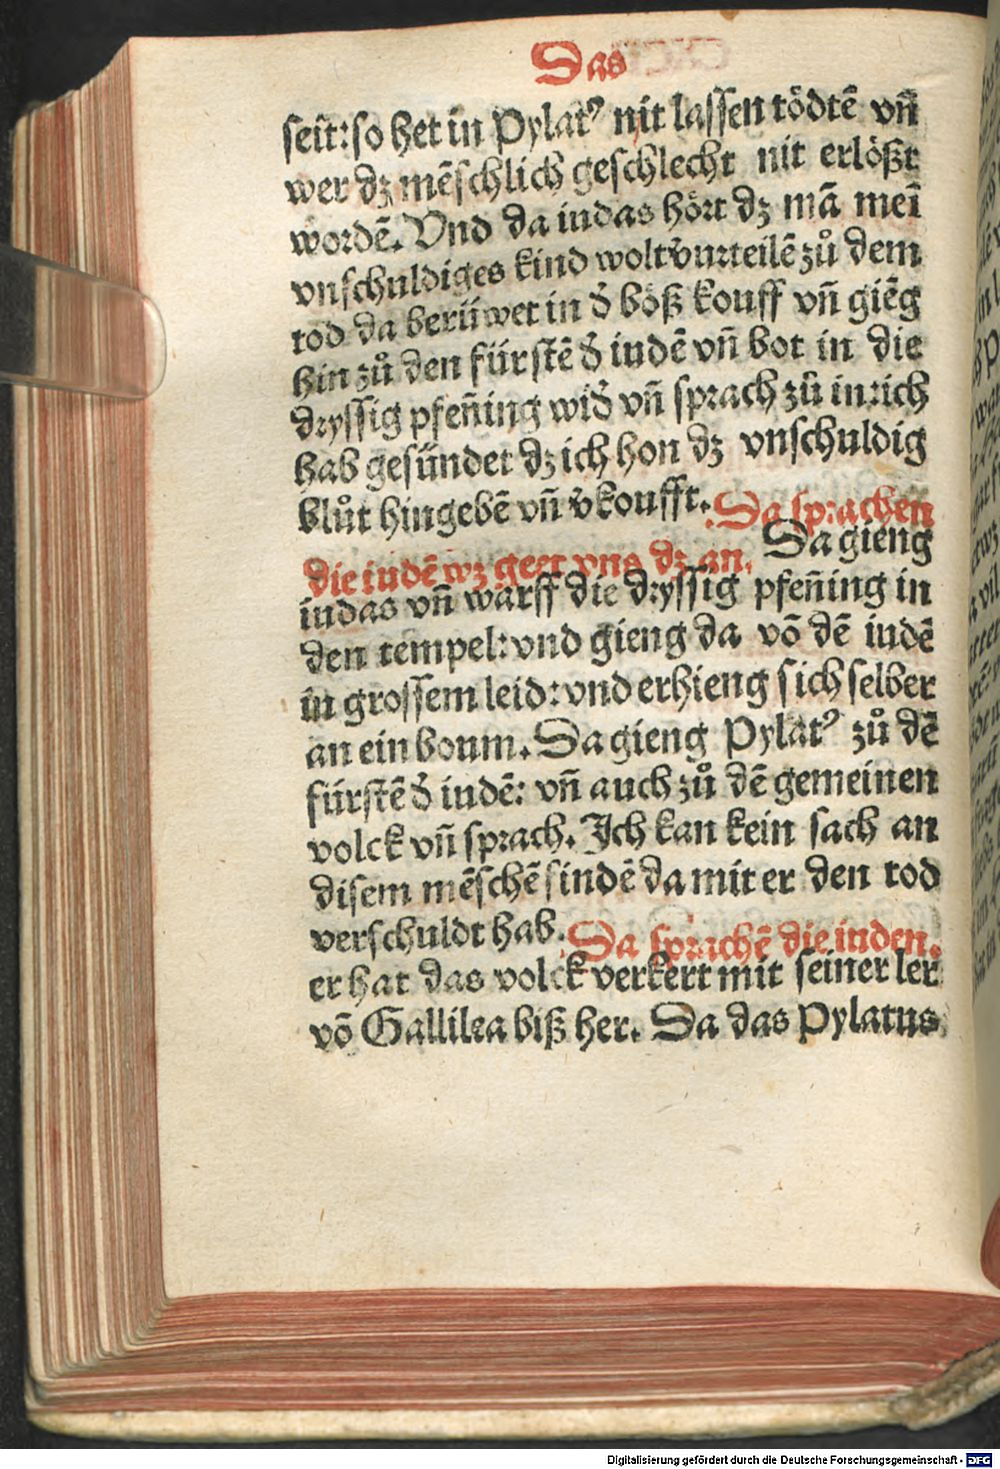 Das
seit: so het in Pylatꝰ nit lassen tödtē vn̄
wer dz mēschlich geschlecht nit erlößt
wordē. Vnd da iudas hört dz mā mei
vnschuldiges kind wolt v̄urteilē zů dem
tod da berüwet in d̄ böß kouff vn̄ giēg
hin zů den fürstē d̄ iudē vn̄ bot in die
dryssig pfen̄ing wid̄ vn̄ sprach zů in: ich
hab gesündet dz ich hon dz vnschuldig
blůt hingebē vn̄ v̄koufft. Da sprachen
die iudē wz geet vns dz an. Da gieng
iudas vn̄ warff die dryssig pfen̄ing in
den tempel: vnd gieng da vō dē iudē
in grossem leid: vnd erhieng sich selber
an ein boum. Da gieng Pylatꝰ zů dē
fürstē d̄ iudē: vn̄ auch zů dē gemeinen
volck vn̄ sprach. Ich kan kein sach an
disem mēschē findē da mit er den tod
verschuldt hab. Da sprachē die iuden.
er hat das volck verkert mit seiner ler
vō Gallilea biß her. Da das Pylatus
Digitalisierung gefördert durch die Deutsche Forschungsgemeinschaft - DFG